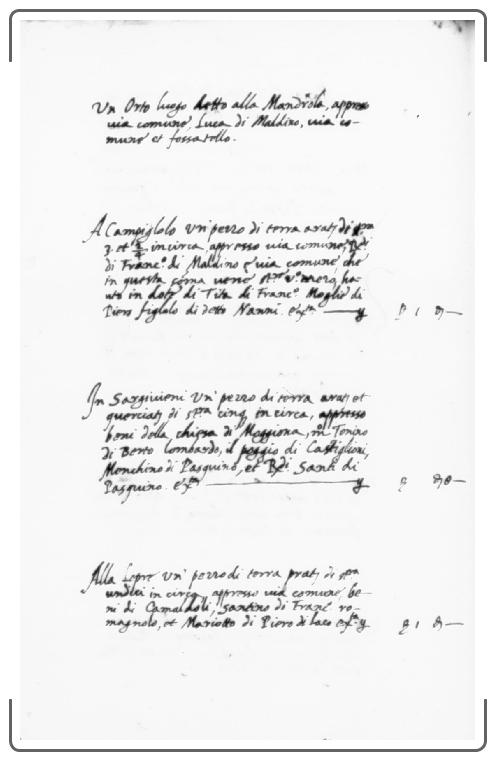 Un Orto luogo detto alla Mandriola, appresso
via comune, Luca di Maldino, via co-
mune et fossatello.
A Campiglolo un' pezzo di terra arat; di st.ra
3. et in circa, appresso via comune, R.di
di Franc.o di Maldino e via comune che
in questa soma viene st.ra v.o mezo, ha-
uto in dote di Tita di Franc.o Moglie di
Piero figlolo di detto Nanni. ex.m
In Sargivieni un' pezzo di terra arat; et
querciat; di st.ra cinq in circa, appresso
beni della chiesa di Moggiona, m.o Tonino
di Berto Lombardo, il poggio di Castiglioni,
Menchino di Pasquino, et R.di Santi di
Pasquino. ex.m
Alla Lepre un' pezzo di terra prat; di st.ra
undici in circa, appresso via comune, be-
ni di Camaldoli, Santino di Franc ro-
magnolo, et Mariotto di Piero di Laco